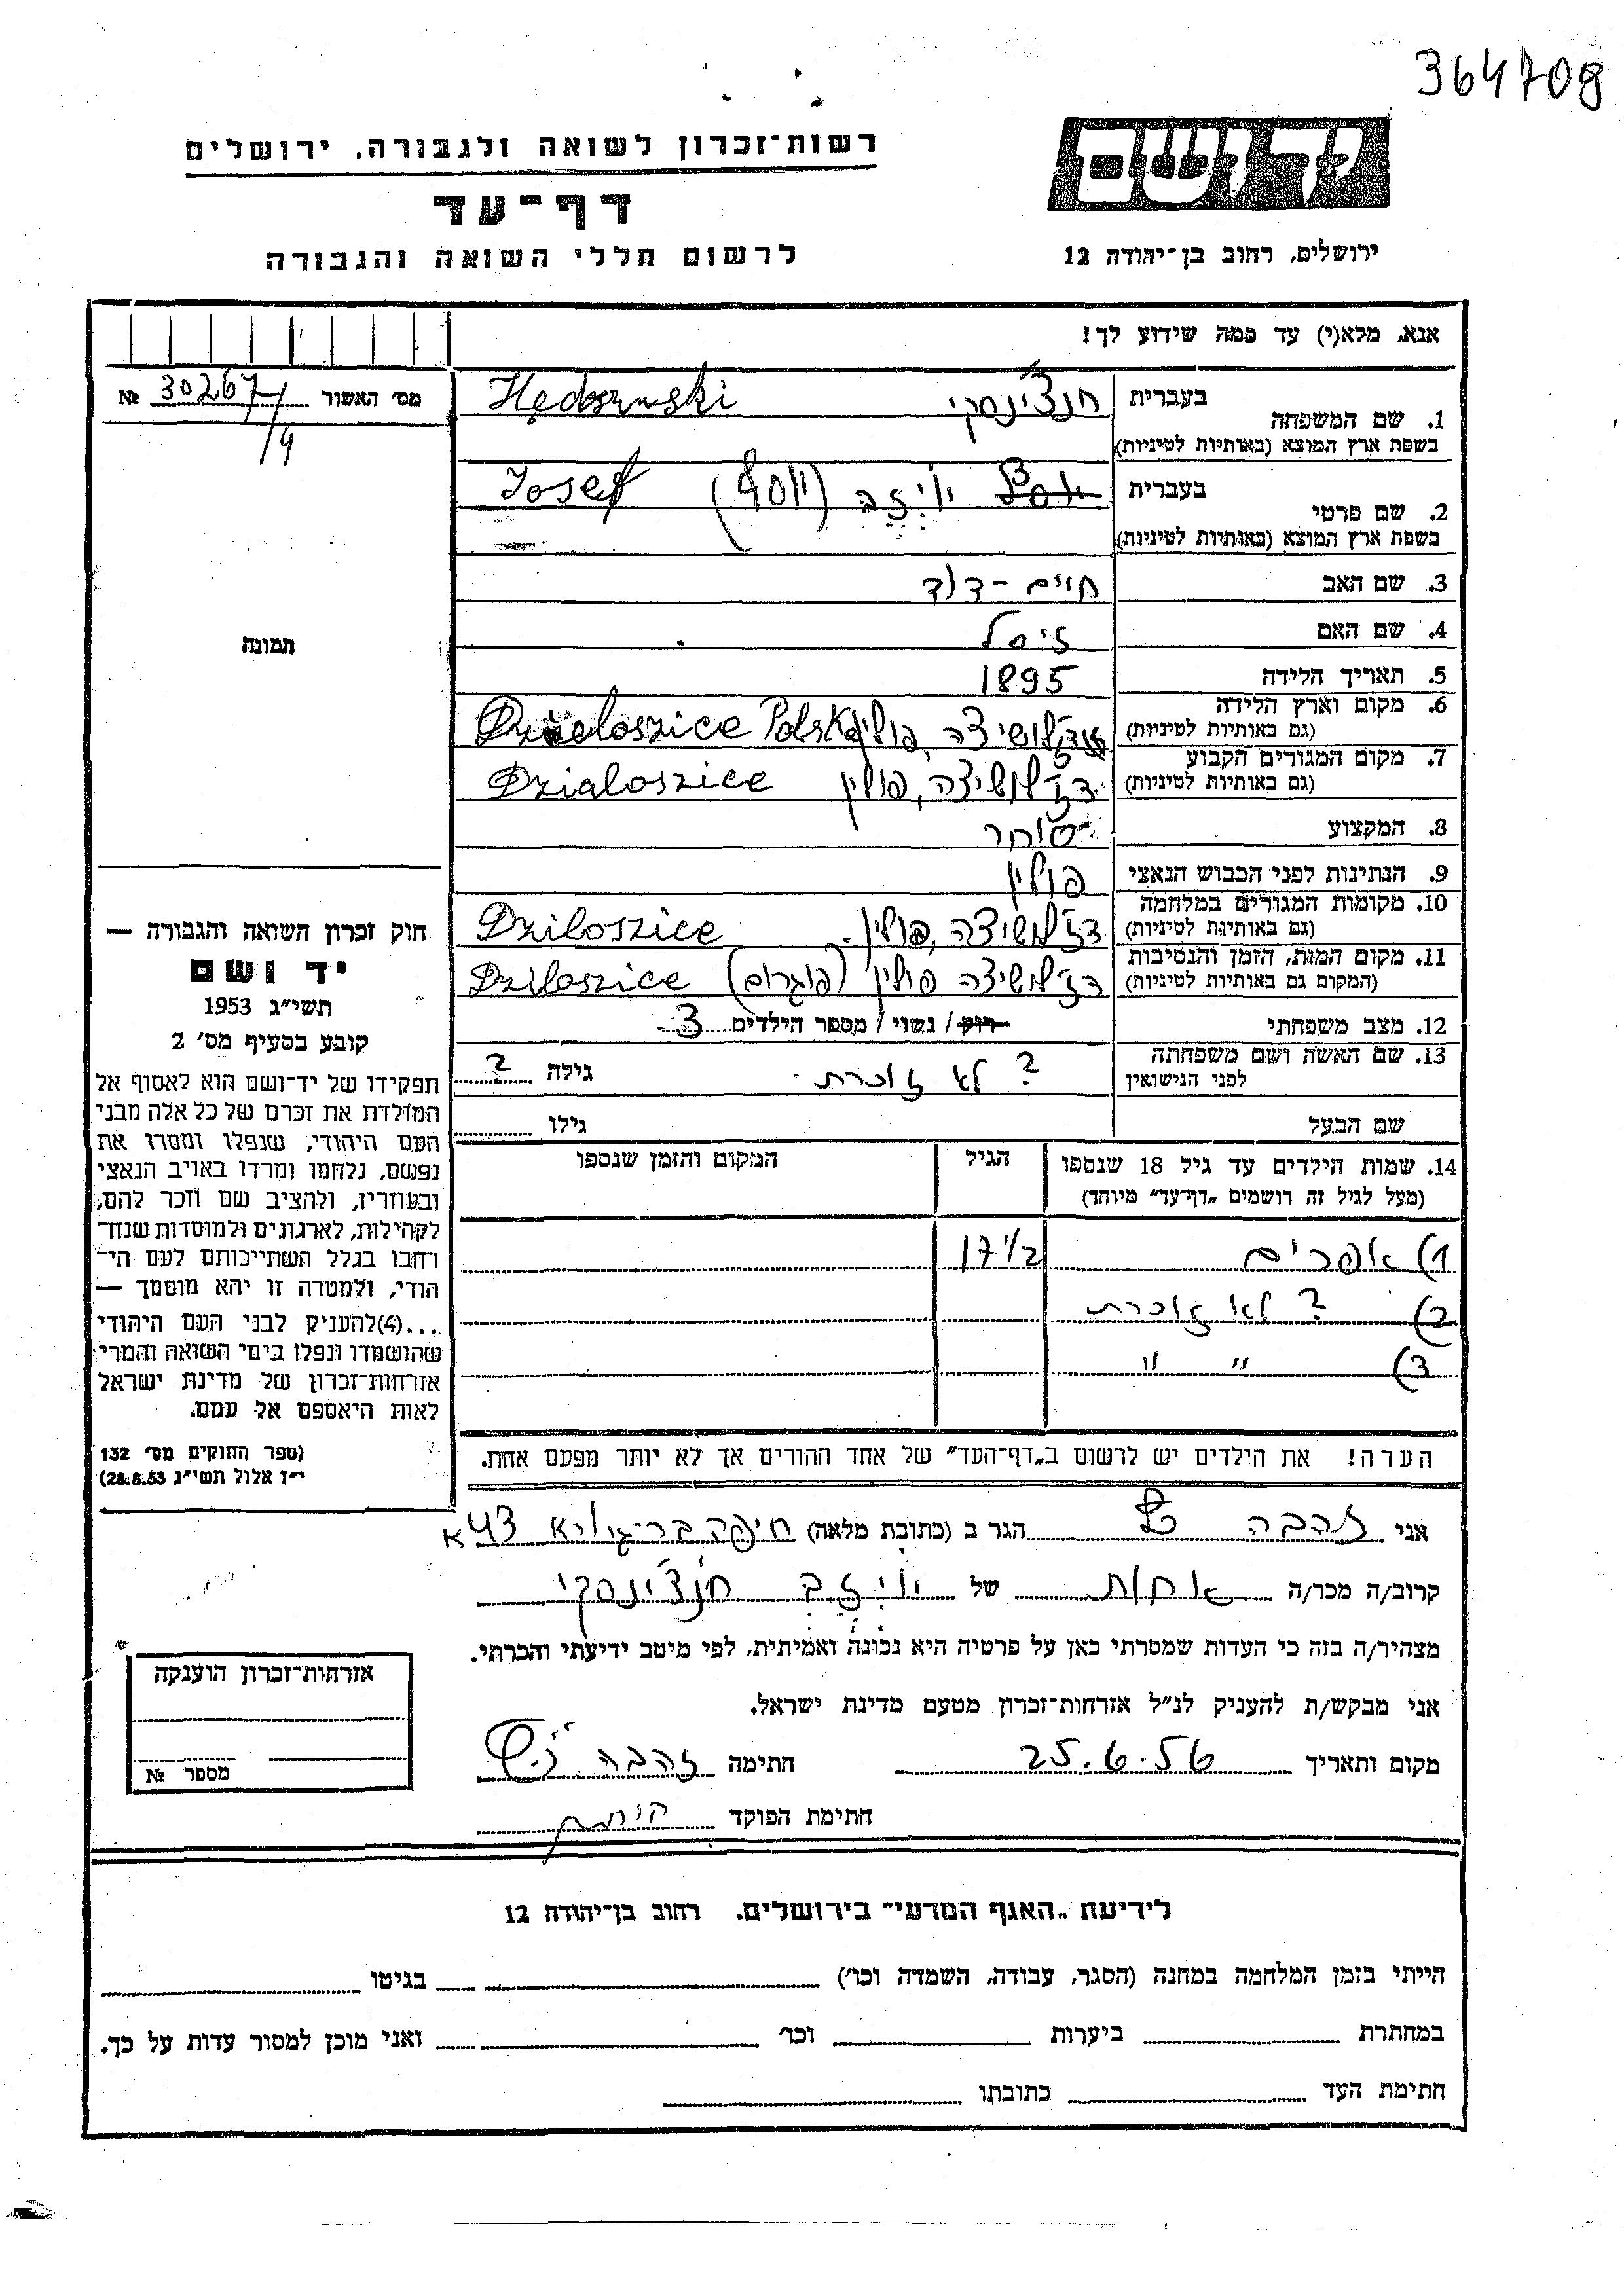 364708
יד ושם
רשות־זכרון לשואה ולגבורה, ירושלים
דף־עד
לרשום חללי השואה והגבורה
ירושלים, רחוב בן־יהודה 12
אנא, מלא(י) עד כמה שידוע לך!
מס׳ האשור 30267 №
/4
1. שם המשפחה בעברית חנצ'ינסקי
בשפת ארץ המוצא (באותיות לטיניות)
2. שם פרטי בעברית יוזב (יוסף) Josef
בשפת ארץ המוצא (באותיות לטיניות)
3. שם האב חיים - דוד
4. שם האם זיסל
5. תאריך הלידה 1895
6. מקום וארץ הלידה דזלושיצה, פולין Polska
(גם באותיות לטיניות)
7. מקום המגורים הקבוע דז'לושיצה, פולין Dzialoszice
(גם באותיות לטיניות)
8. המקצוע סוחר
9. הנתינות לפני הכבוש הנאצי פולין
10. מקומות המגורים במלחמה דז'לושיצה, פולין Dziloszice
(גם באותיות לטיניות)
11. מקום המות, הזמן והנסיבות דז'לושיצה פולין (פוגרום) Dziloszice
(המקום גם באותיות לטיניות)
12. מצב משפחתי רוק / נשוי / מספר הילדים 3
13. שם האשה ושם משפחתה ? לא זוכרת גילה ?
לפני הנישואין
שם הבעל גילו
14. שמות הילדים עד גיל 18 שנספו הגיל המקום והזמן שנספו
(מעל לגיל זה רושמים „דף־עד״ מיוחד)
1) אפרים 17 1/2
2) ? לא זוכרת
3) " "
הערה! את הילדים יש לרשום ב„דף־העד״ של אחד ההורים אך לא יותר מפעם אחת.
תמונה
חוק זכרון השואה והגבורה —
יד ושם
תשי״ג 1953
קובע בסעיף מס׳ 2
תפקידו של יד־ושם הוא לאסוף אל
המולדת את זכרם של כל אלה מבני
העם היהודי, שנפלו ומסרו את
נפשם, נלחמו ומרדו באויב הנאצי
ובעוזריו, ולהציב שם וזכר להם,
לקהילות, לארגונים ולמוסדות שנח־
רבו בגלל השתייכותם לעם הי־
הודי, ולמטרה זו יהא מוסמך —
...(4)להעניק לבני העם היהודי
שהושמדו ונפלו בימי השואה והמרי
אזרחות־זכרון של מדינת ישראל
לאות היאספם אל עמם.
(ספר החוקים מס׳ 132
י״ז אלול תשי״ג 28.8.53)
אני זהבה הגר ב (כתובת מלאה) חיפה בר-גיורא 43 א
קרוב/ה מכר/ה אחות של יוזב חנצ'ינסקי
מצהיר/ה בזה כי העדות שמסרתי כאן על פרטיה היא נכונה ואמיתית, לפי מיטב ידיעתי והכרתי.
אני מבקש/ת להעניק לנ״ל אזרחות־זכרון מטעם מדינת ישראל.
מקום ותאריך 25.6.56 חתימה זהבה
חתימת הפוקד
אזרחות־זכרון הוענקה
מספר №
לידיעת „האגף המדעי״ בירושלים. רחוב בן־יהודה 12
הייתי בזמן המלחמה במחנה (הסגר, עבודה, השמדה וכו׳) בגיטו
במחתרת ביערות וכו׳ ואני מוכן למסור עדות על כך.
חתימת העד כתובתו